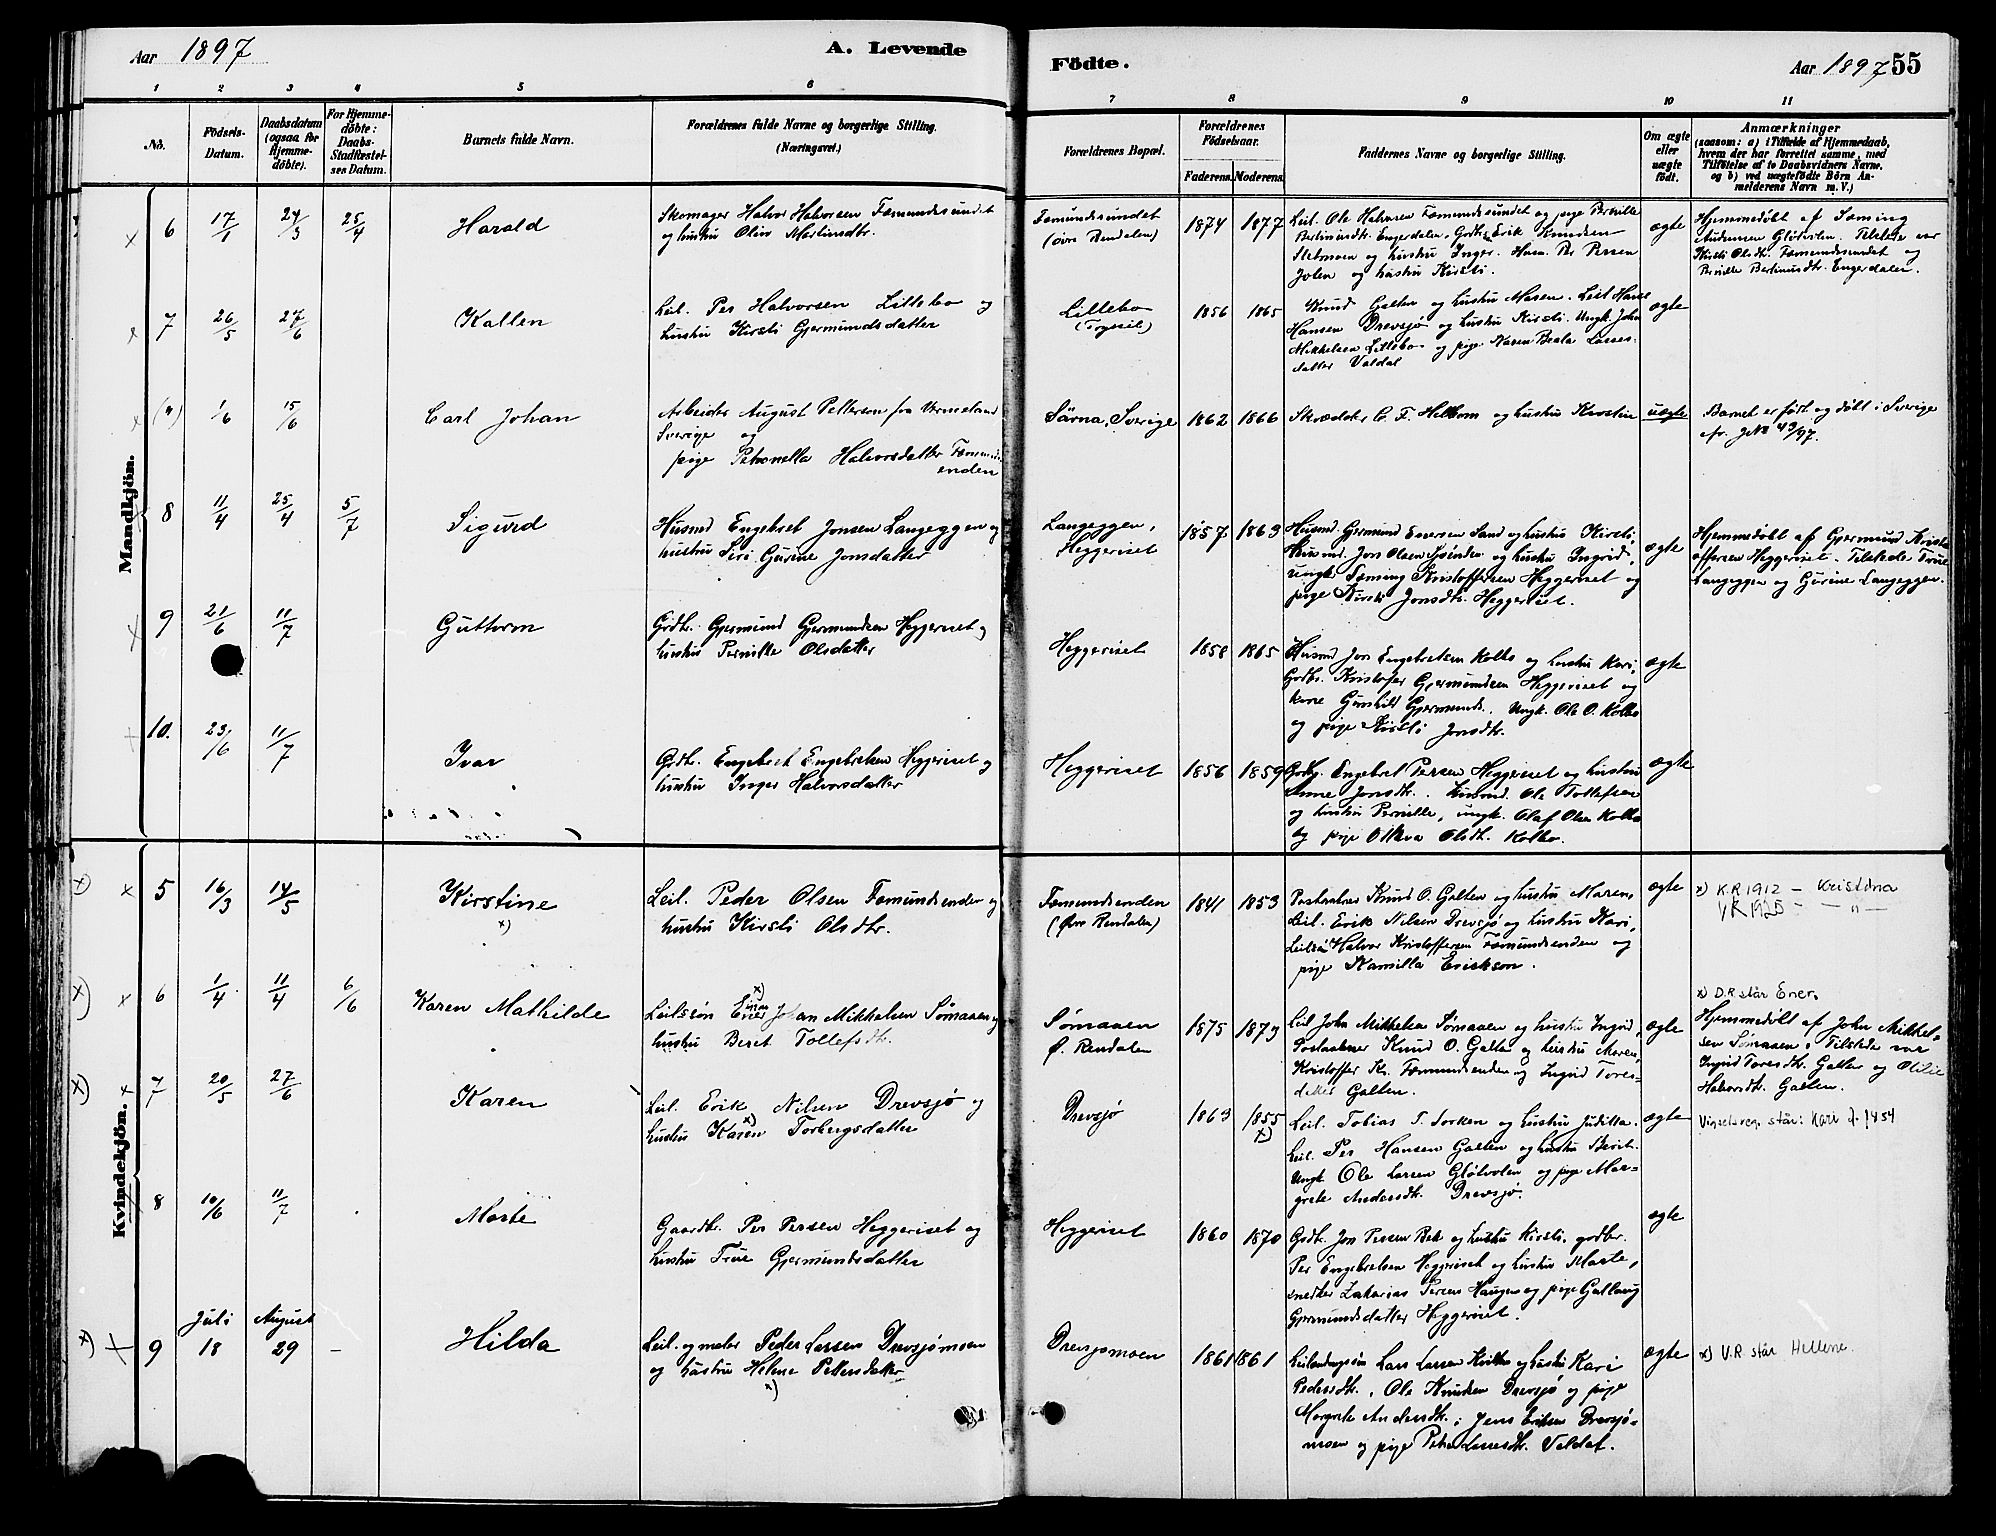 Aar 1897
A. Levende
Födte.
Aar 1897
55
1 2 3 4 5 6 7 8 9 10 11
No.
Födsels-Datum.
Daabsdatum (ogsaa for Hjemme-döbte).
For Hjemme-döbte: Daabs-Stadfæstel-ses Datum.
Barnets fulde Navn.
Forældrenes fulde Navne og borgerlige Stilling.
(Næringsvei.)
Forældrenes Bopæl.
Forældrenes Födselsaar.
Faderens. Moderens.
Faddernes Navne og borgerlige Stilling.
Om ægte eller uægte födt.
Anmærkninger
(saasom: a) i Tilfælde af Hjemmedaab,
hvem der har forrettet samme, med
Tilföielse af to Daabsvidners Navne.
og b) ved uægtefödte Börn An-
melderens Navn m. V.)
Mandkjön.
6 17/1 24/3 25/4 Harald
Skomager Halvor Halvorsen Fæmundssundet
og hustru Oline Martinsdtr.
Fæmundssundet
(øvre Rendalen)
1874 1877
Leil. Ole Halvorsen Fæmundssundet og pige Pernille
Bertinusdtr. Engerdalen. Gdbr. Erik Knudsen
og hustru Inger. Husm. Per Persen
Jolen og hustru Kirsti.
ægte
Hjemmedøbt af Sæming
Audunsen Gløtvolen. Tilstede var
Kirsti Olsdtr. Fæmundssundet og
Pernille Bertinusdtr. Engerdalen.
7 26/5 27/6 Kallen
Leil. Per Halvorsen Lillebo og
hustru Kirsti Gjermundsdatter
Lillebo
(Trysil)
1856 1865
Knud Galten og hustru Maren. Leil Hans
Hansen Drevsjø og hustru Kirsti. Ungk. John
Mikkelsen Lillebo og pige Karen Beata Larses-
datter Valdal
ægte
(") 1/6 15/6 Carl Johan
Arbeider August Petterson fra Vermeland
Sverige og
pige Petronella Halvorsdatter Fæmunds-
enden
Särna, Sverige
1862 1866
Skrædder C. F. Helbom og hustru Kerstin
uægte
Barnet er født og døbt i Sverige
cfr. JNr 49/97.
8 11/4 25/4 5/7 Sigurd
Husmd Engebret Jonsen Langeggen og
hustru Siri Gurine Jonsdatter
Langeggen,
Heggeriset
1857 1863
Husmd. Gjermund Enersen Sand og hustru Kirsti,
Husmd. Jon Olsen Sønden og hustru Ingrid,
ungk. Sæming Kristoffersen Heggeriset og
pige Kirsti Jonsdtr. Heggeriset.
ægte
Hjemmedøbt af Gjermund Krist-
offersen Heggeriset. Tilstede True
Langeggen og Gurine Langeggen.
9 21/6 11/7 Guttorm
Grdbr. Gjermund Gjermundsen Heggeriset og
hustru Pernille Olsdatter
Heggeriset
1858 1865
Husmd Jon Engebretsen Kolbo og hustru Kari,
Grdbr. Kristofer Gjermundsen Heggeriset og
kone Gunhild Gjermunds. Ungk. Ole O. Kolbo
og pige Kirsti Jonsdtr.
ægte
10. 23/6 11/7 Ivar
Grdbr. Engebret Engebretsen Heggeriset og
hustru Inger Halvorsdatter
Heggeriset
1856 1859
Grdbr. Engebret Persen Heggeriset og hustru
Anne Jonsdtr. Husmd. Ole Tollefsen
og hustru Pernille, ungk. Olaf Olsen Kolbo
og pige Oleva Olsdtr. Kolbo.
ægte
Kvindekjön.
x) 5 16/3 14/5 Kirstine x)
Leil. Peder Olsen Fæmundsenden og
hustru Kirsti Olsdtr.
Fæmundsenden
(Øvre Rendalen)
1841 1853
Postaabner Knud O. Galten og hustru Maren,
Leil. Erik Nilsen Drevsjø og hustru Kari,
Leilsøn Halvor Kristoffersen Fæmundsenden og
pige Kamilla Erickson.
ægte
x) K.R 1912 - Kristina
VR 1925 - - " -
x) 6 1/4 11/4 6/6 Karen Mathilde
Leilssøn Einar x) Johan Mikkelsen Sømaaen og
hustru Beret Tollefsdtr.
Sømaaen
Ø. Rendalen
1875 1873
Leil John Mikkelsen Sømaaen og hustru Ingrid,
Postaabner Knud O. Galten og hustru Maren,
Kristoffer Kr. Fæmundsenden og Ingrid Tores-
datter Galten.
ægte
x) D.R står Ener.
Hjemmedøbt af John Mikkel-
sen Sømaaen. Tilstede var
Ingrid Toresdtr. Galten og Otilie
Halvorsdtr. Galten.
x) 7 20/5 27/6 Karen
Leil. Erik Nilsen Drevsjø og
hustru Karen x) Torbergsdatter
Drevsjø
1863 1855 x)
Leil. Tobias T. Sorken og hustru Juditta.
Leil. Per Hansen Galten og hustru Berit.
Ungk. Ole Larsen Gløtvolen og pige Mar-
grete Andersdtr. Drevsjø.
ægte
Vigselsreg. står: Kari f. 1854
8 10/6 11/7 Marte
Gaardbr. Per Persen Heggeriset og
hustru True Gjermundsdatter
Heggeriset
1860 1870
Grdbr. Jon Persen Bek og hustru Kirsti, gdbr.
Per Engebretsen Heggeriset og hustru Marte,
snedker Zakarias Persen Haugen og pige Gullaug
Gjermundsdatter Heggeriset.
ægte
x) 9 Juli 18 August 29 - Hilda
Leil. og maler Peder Larsen Drevsjømoen
og hustru Helene Pettersdatter
x)
Drevsjømoen
1861 1861
Leilændingssøn Lars Larsen Kvilten og hustru Kari
Pedersdtr., Ole Knudsen Drevsjø og pige
Margrete Andersdtr.; Jens Eriksen Drevsjø-
moen og pige Petra Larsesdtr. Valdal.
ægte
x) V.R står Hellene.